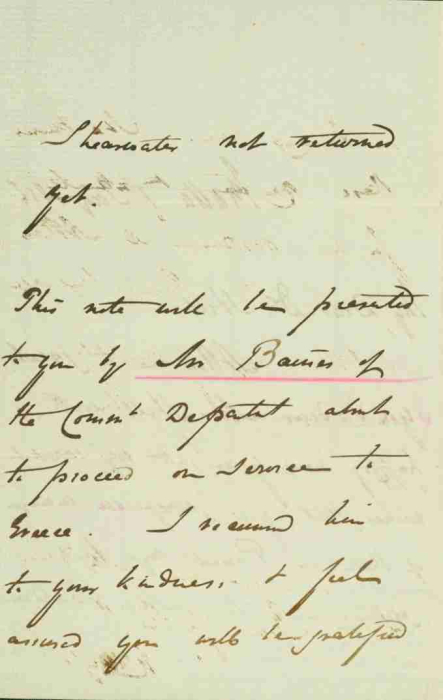 Shearwater not returned
yet.
This note will be presented
to you by Mr Baines of
the Commt Departt about
to proceed on Service to
Greece. I recommd him
to your kindness. & feel
assured you will be gratified